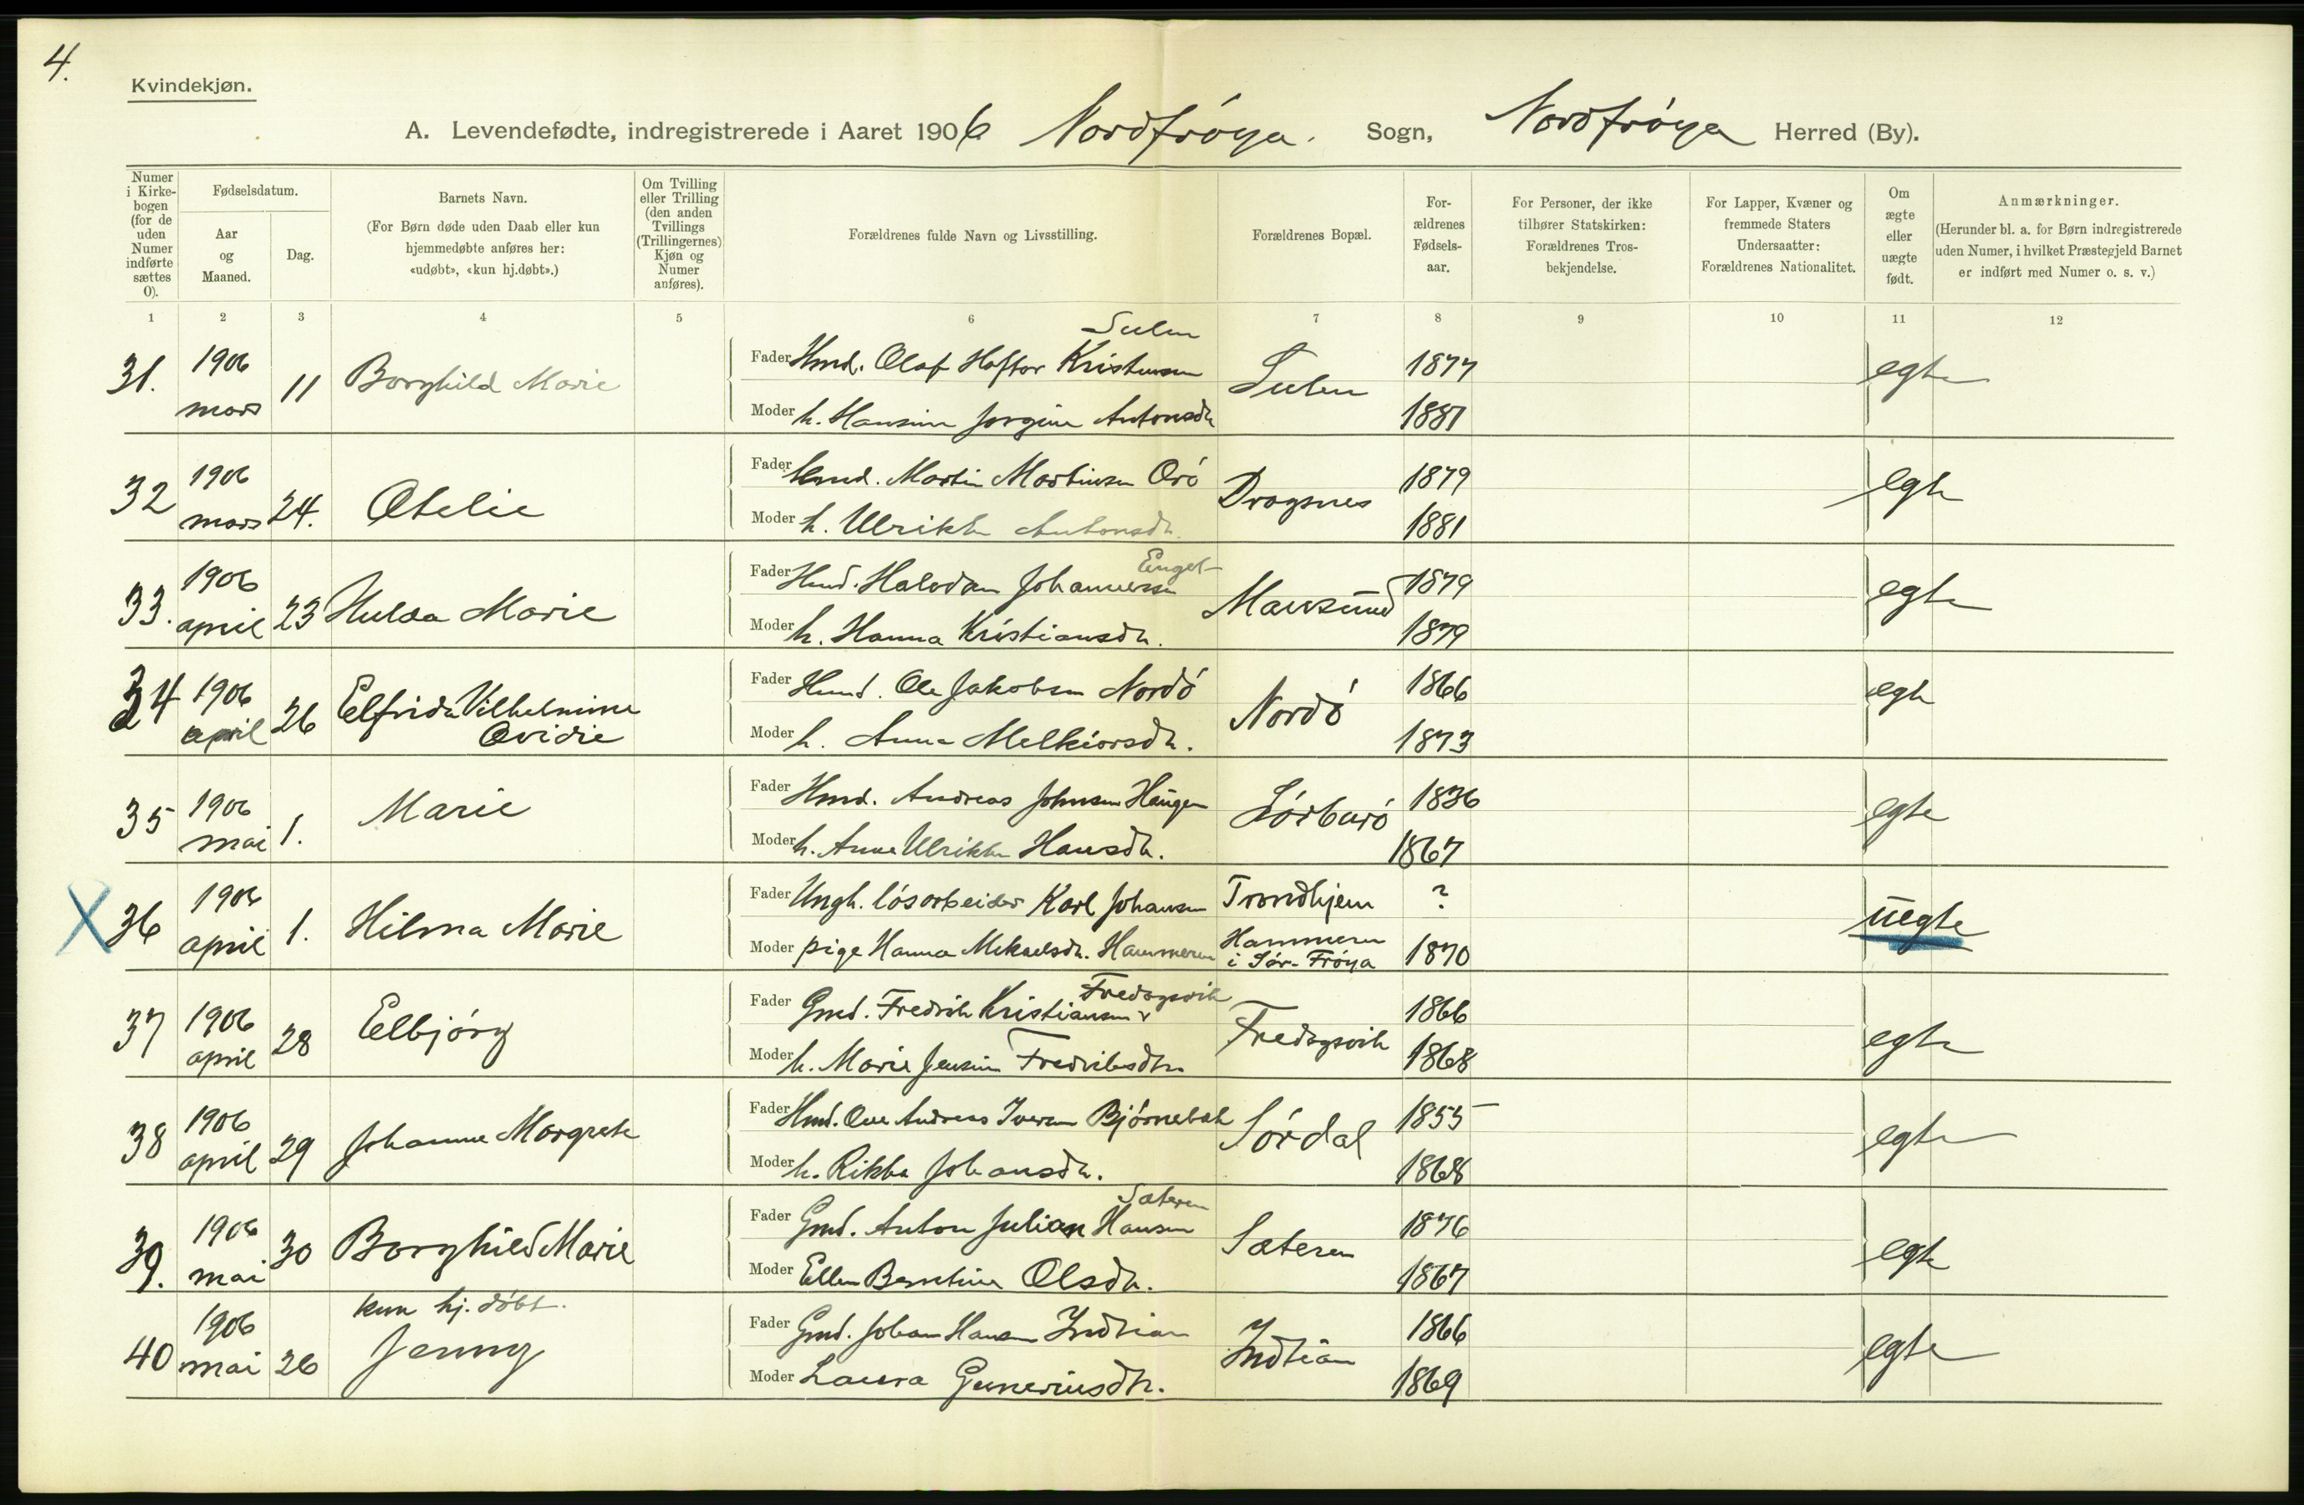 4.
Kvindekjøn.
A. Levendefødte, indregistrerede i Aaret 1906 Nordfróya. Sogn, Nordfróya Herred (By).
Numer i Kirke-bogen (for de uden Numer indførte sættes 0).
Fødselsdatum.
Aar og Maaned.
Dag.
Barnets Navn.
(For Børn døde uden Daab eller kun hjemmedøbte anføres her: «udøbt», «kun hj.døbt».)
Om Tvilling eller Trilling (den anden Tvillings (Trillingernes) Kjøn og Numer anføres).
Forældrenes fulde Navn og Livsstilling.
Forældrenes Bopæl.
For-ældrenes Fødsels-aar.
For Personer, der ikke tilhører Statskirken: Forældrenes Tros-bekjendelse.
For Lapper, Kvæner og fremmede Staters Undersaatter: Forældrenes Nationalitet.
Om ægte eller uægte født.
Anmærkninger.
(Herunder bl. a. for Børn indregistrerede uden Numer, i hvilket Præstegjeld Barnet er indført med Numer o. s. v.)
1 2 3 4 5 6 7 8 9 10 11 12
31. 1906 mars 11 Borghild Marie
Fader Hmd. Olaf Haftor Kristensen Sulen Sulen 1877 egte
Moder h. Hansine Jorgine Antonsdtr 1881
32 1906 mars 24. Otelie
Fader Hmd. Martin Martinsen Oró Dragsnes 1879 egte
Moder h. Ulrikke Antonsdtr. 1881
33. 1906 april 23 Hulda Marie
Fader Hmd. Halvdan Johannessen Mausund 1879 egte
Moder h. Hanna Kristiansdtr. 1879
34 1906 april 26 Elfrida Vilhelmine Ovidie
Fader Hmd. Ole Jakobsen Nordó Nordó 1866 egte
Moder h. Anna Melkiorsdtr. 1873
35 1906 mai 1. Marie
Fader Hmd. Andreas Johnsen Haugen Sórburó 1836 egte
Moder h. Anne Ulrikke Hansdtr. 1867
X 36 1906 april 1. Hilma Marie
Fader Ungk. lósarbeider Karl Johansen Trondhjem ? uegte
Moder pige Hanna Mikaelsdtr. Hammeren Hammeren i Sór-Fróya 1870
37 1906 april 28 Elbjórg
Fader Gmd. Fredrik Kristiansen Fredagsvik Fredagsvik 1866 egte
Moder h. Marie Jensine Fredriksdtr. 1868
38 1906 april 29 Johanne Margrete
Fader Hmd. Ove Andreas Iversen Bjórnebak Sórdal 1855 egte
Moder h. Rikka Johansdtr. 1868
39. 1906 mai 30 Borghild Marie
Fader Gmd. Anton Julian Hansen Sæteren Sæteren 1876 egte
Moder Ellen Berntine Olsdtr. 1867
40 1906 mai 26 kun hj. dóbt. Jenny
Fader Gmd. Johan Hansen Indtian Indtian 1866 egte
Moder Laura Guneriusdtr. 1869